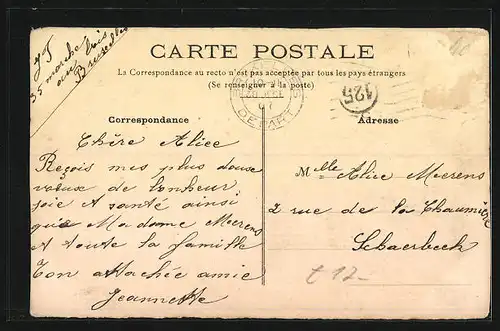 35 marché
au bois
Bruxelles
CARTE POSTALE
La Correspondance au recto n'est pas acceptée par tous les pays étrangers
(Se renseigner à la poste)
DEPART
125
Correspondance
Adresse
Chère Alice
Reçois mes plus doux
vœux de bonheur
joie & santé ainsi
que Madame Meerens
& toute la famille
Ton attachée amie
Jeannette
Melle Alice Meerens
2 rue de la Chaumière
Schaerbeek
t 12-